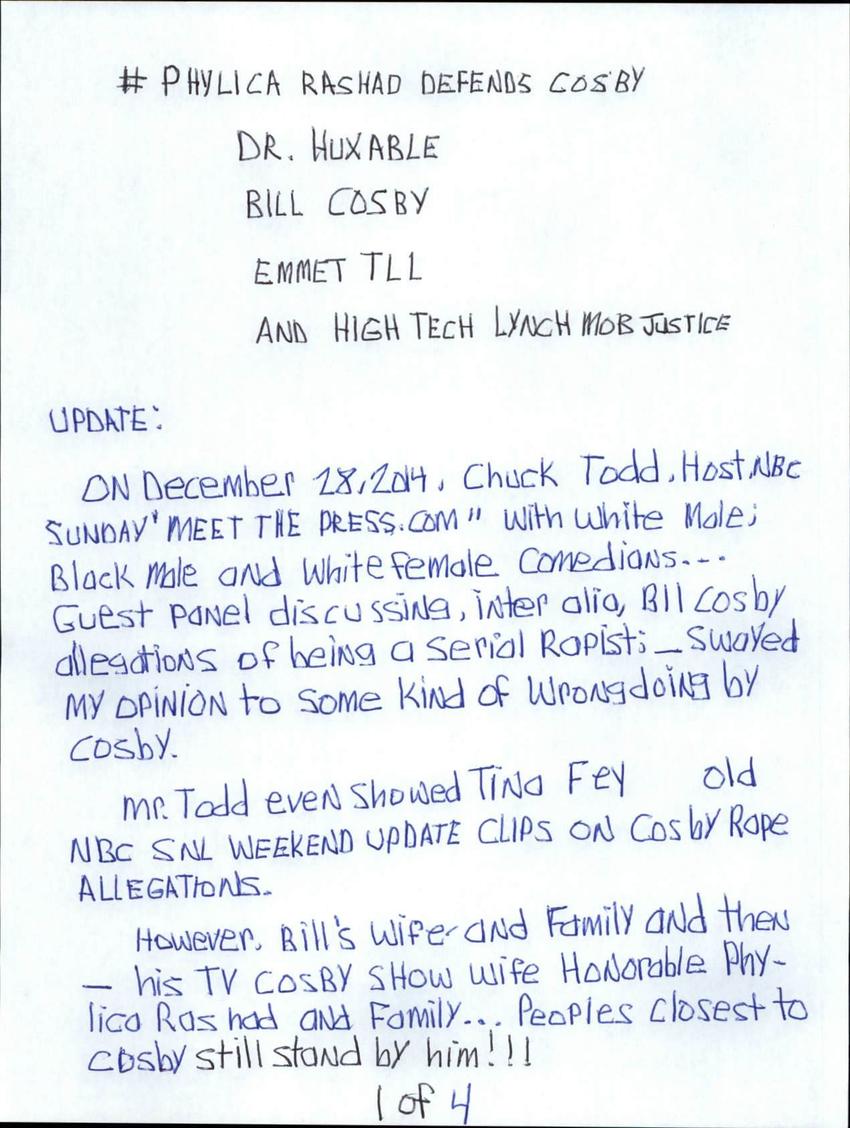 # PHYLICA RASHAD DEFENDS COSBY
DR. HUXABLE
BILL COSBY
EMMET TLL
AND HIGH TECH LYNCH MOB JUSTICE
UPDATE:
ON December 28, 2014, Chuck Todd, Host, NBC
SUNDAY "MEET THE PRESS.COM" with white Male;
Black Male and White female Comedians...
Guest panel discussing, inter alia, Bll Cosby
allegations of being a serial Rapist; — swayed
MY OPINION to some kind of Wrongdoing by
Cosby.
Mr. Todd even showed Tina Fey old
NBC SNL WEEKEND UPDATE CLIPS ON Cosby Rape
ALLEGATIONS.
However, Bill's wife and Family and then
— his TV COSBY SHOW wife Honorable Phy-
lica Rashad and Family... Peoples closest to
Cosby still stand by him!!!
1 of 4